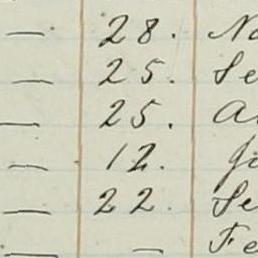 — 28. No
— 25. Se
— 25. Au
— 12. Ja
— 22. Se
— — Fe